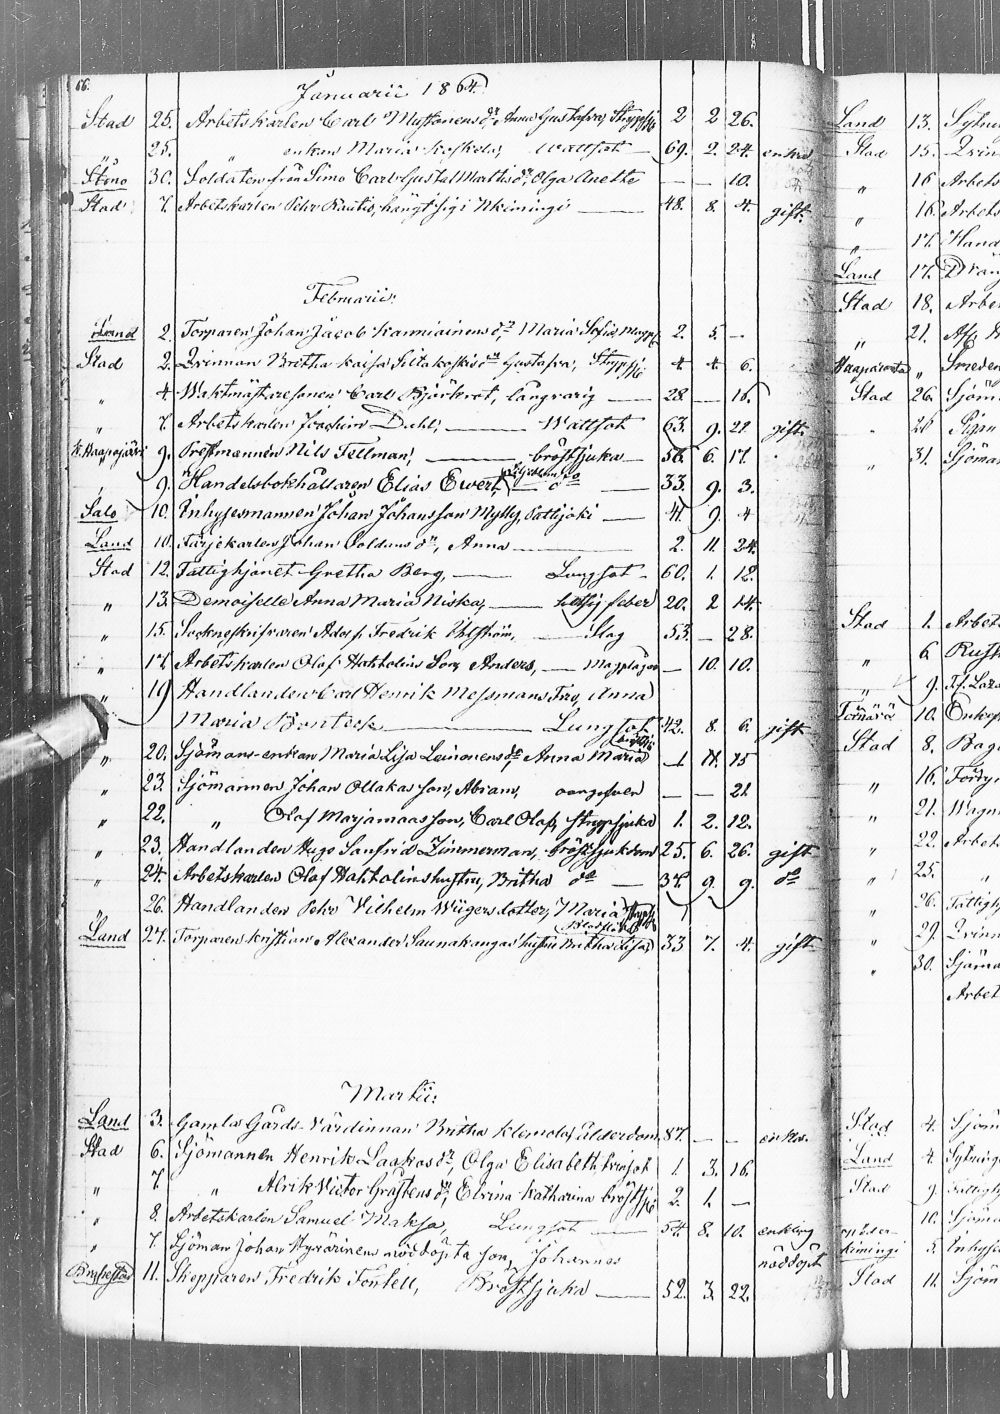 66.
Januarii 1864.
Stad 25. Arbetskarlen Carl Mustonens dr Anna Gustafva, Strypsj. 2 2 26.
25. " enkan Maria Koskela, Wattsot 69. 2. 24. enka
Simo 30. Soldaten från Simo Carl Gustaf Marths dr, Olga Anette — — 10.
Stad 7. Arbetskarlen Pehr Rautio, hängt sig i Ukimingi — 48. 8. 4. gift.
Februarii:
Land 2. Torparen Johan Jacob Kamiainens dr, Maria Sofia, Magpl. 2. 5. —
Stad 2. Qvinnan Bretha Kaisa Siltakoskis dr Gustafva, Strypsj. 4 4 6.
" 4 Waktmästaresonen Carl Björkrot, långvarig — 28 — 16.
" 7. Arbetskarlen Joachim Dahl, — Wattsot 63. 9. 21. gift.
K. Haapajärvi 9. Prestmannen Nils Fellman, — bröstsjuka — 56. 6. 17.
" 9. Handelsbokhållaren Elias Ewert, — do — 33. 9. 3.
Salo 10. Inhysesmannen Johan Johansson Mylly, Pattijoki — 41. 9. 4
Land 10. Färjekarlen Johan Poldans dr, Anna — 2. 11. 24.
Stad 12. Fattighjonet Gretha Berg, — Lungsot — 60. 1. 12.
" 13. Demoiselle Anna Maria Niska, — hetsig feber 20. 2 14.
" 15. Sockneskrifvaren Adolf Fredrik Uhlström, — Slag 53. — 28.
" 17. Arbetskarlen Olaf Hahtolins Son Anders, — magplågor — 10. 10.
" 19 Handlanden Carl Henrik Messmans Fru, Anna
Maria Bonteck — Lungsot 42. 8. 6. gift
" 20. Sjömans-enkan Maria Lisa Leinonens dr, Anna Maria 1 11. 15
" 23. Sjömannen Johan Ollakas son, Abram, oangifven — — 21.
" 22. " Olaf Marjamaas son, Carl Olof, strypsjuka 1. 2. 12.
" 23. Handlanden Hugo Sanfrid Zimmerman, bröstsjukdom 25. 6. 26. gift
" 24. Arbetskarlen Olaf Hahtolins hustru, Britha do — 37. 9. 9. do
" 26. Handlanden Pehr Vilhelm Wiigers dotter, Maria
Land 27. Torparen Kristian Alexander Saunakangas' hustru Britha Lisa, 33 7. 4. gift
Martii:
Land 3. Gamla Gårds-Värdinnan Britha Klemola, ålderdom, 87. — — enka.
Stad 6. Sjömannen Henrik Laakos dr, Olga Elisabeth, trinsot 1. 3. 16.
" 7. " Alrik Victor Gråstens dr, Elvina Katharina bröstsj. 2. 1. —
" 8. Arbetskarlen Samuel Maksa, Lungsot — 54. 8. 10. enkling
" 7. Sjöman Johan Hyvärinens nöddöpta son, Johannes nöddöpt
Brahestad 11. Skepparen Fredrik Fontell, Bröstsjuka — 52. 3. 22.
Land 13.
Stad 15. Qvinn
" 16 Arbets
" 16. Arbets
" 17. Hand
Land 17. Dräng
Stad 18. Arbet
" 21.
Haaparanta " Smeden
Stad 26. Sjöm
" 26 Pigan
" 31. Sjöman
Stad 1. Arbet
" 6.
" 9.
10.
Stad 8.
" 16.
" 21. Wagn
" 22. Arbets
" 25. "
" 26. Fattigh
" 29. Qvinn
" 30. Sjöma
Arbet
Stad 4. Sjöm
Land 4.
Stad 9. Fattigh
10. Sjöm
kimingi 5. Inhys
Stad 11. Sjöm